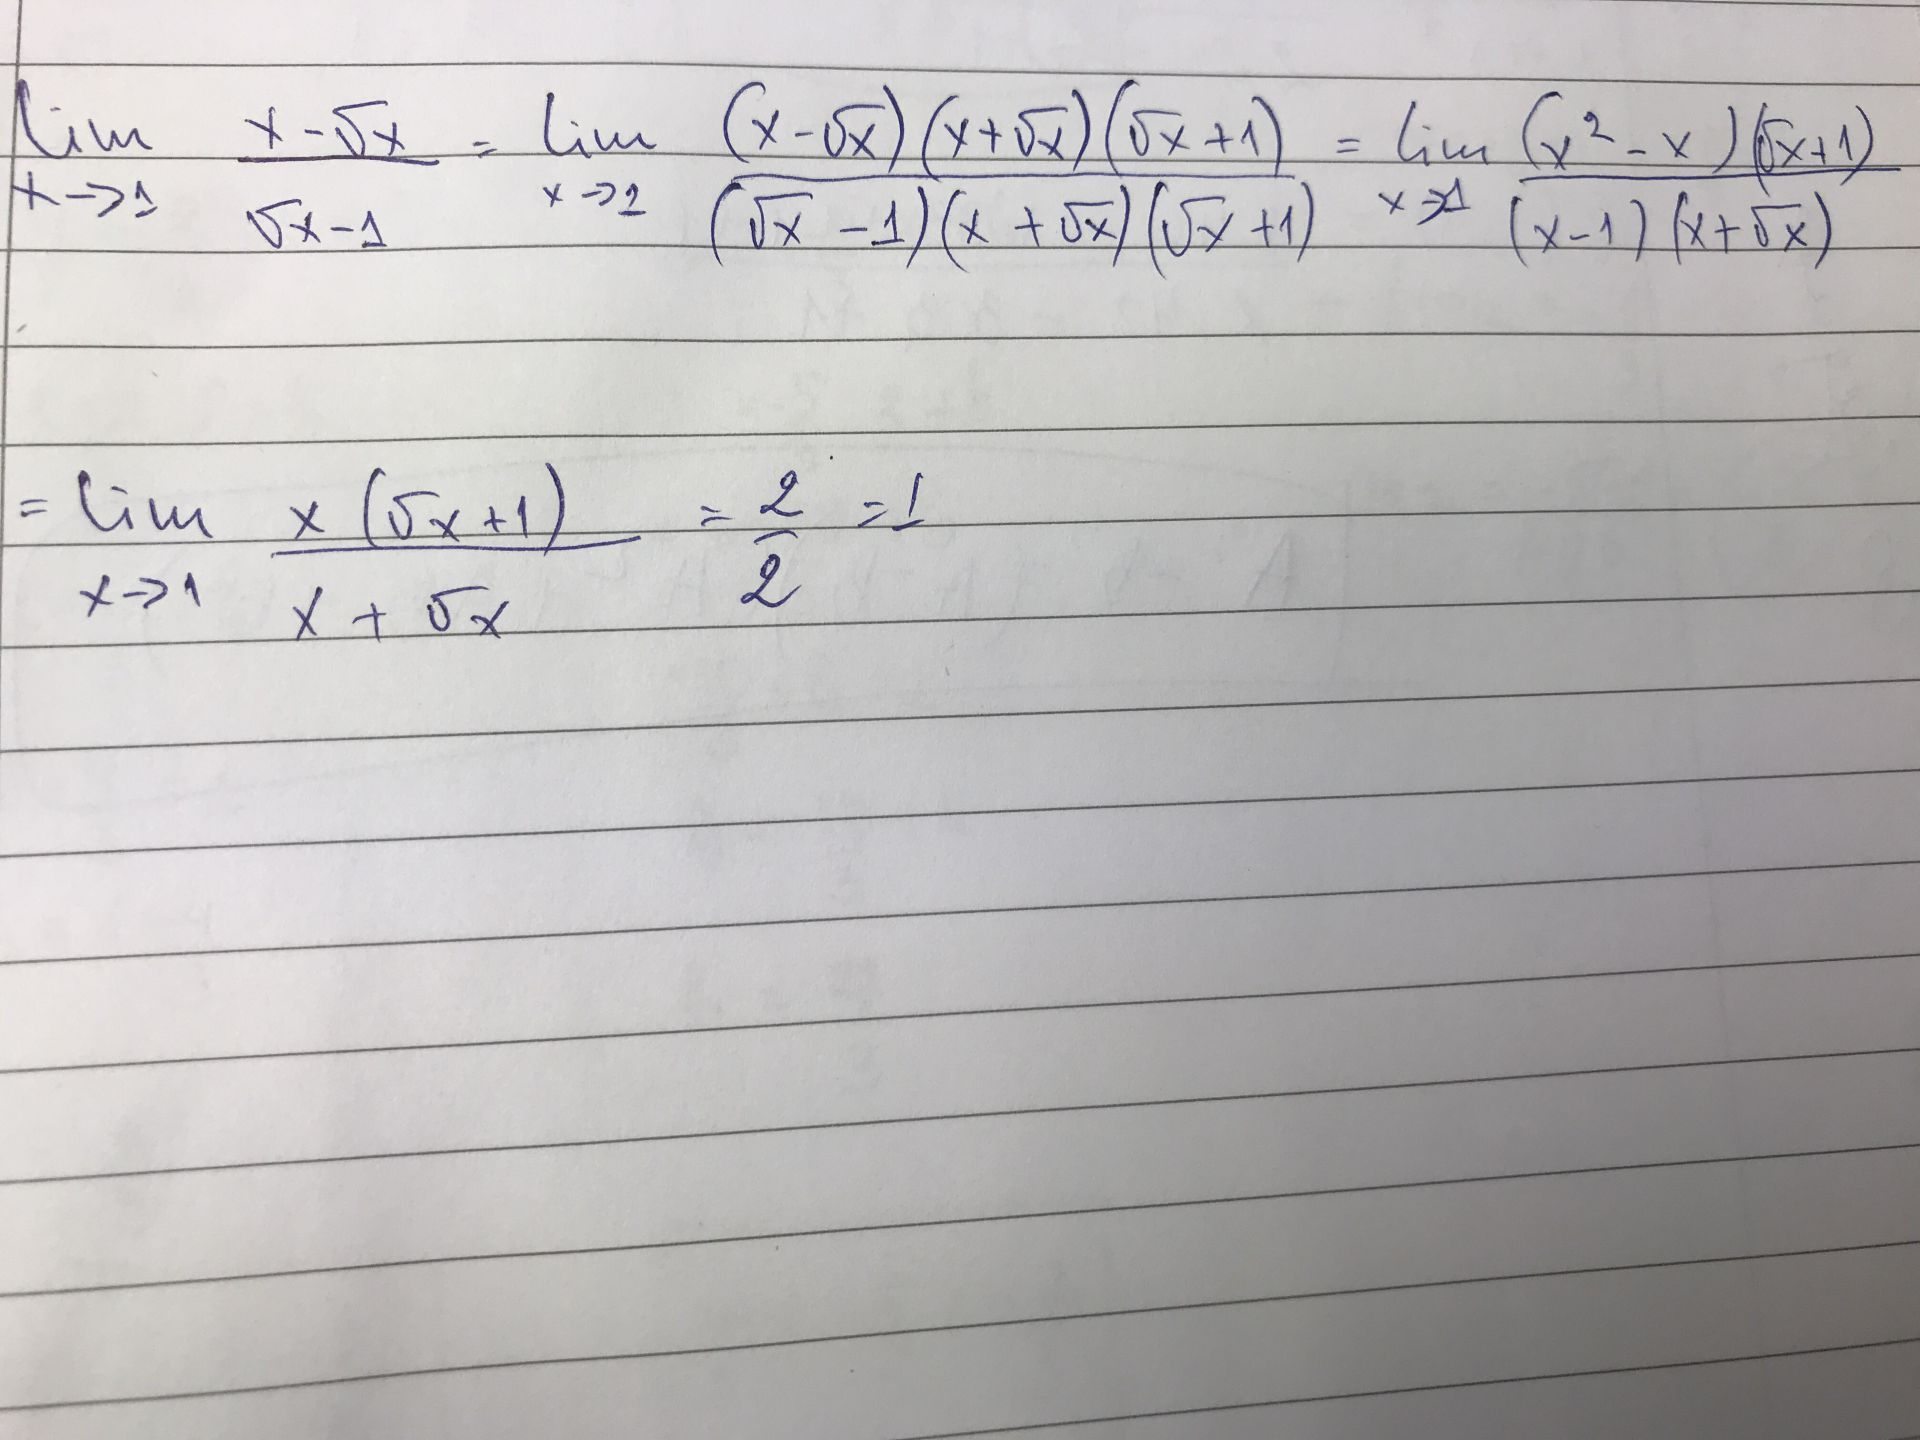 lim x→1 x-√x / √x-1 = lim x→1 (x-√x)(x+√x)(√x+1) / (√x-1)(x+√x)(√x+1) = lim x→1 (x²-x)(√x+1) / (x-1)(x+√x)
= lim x→1 x(√x+1) / x+√x = 2/2 = 1